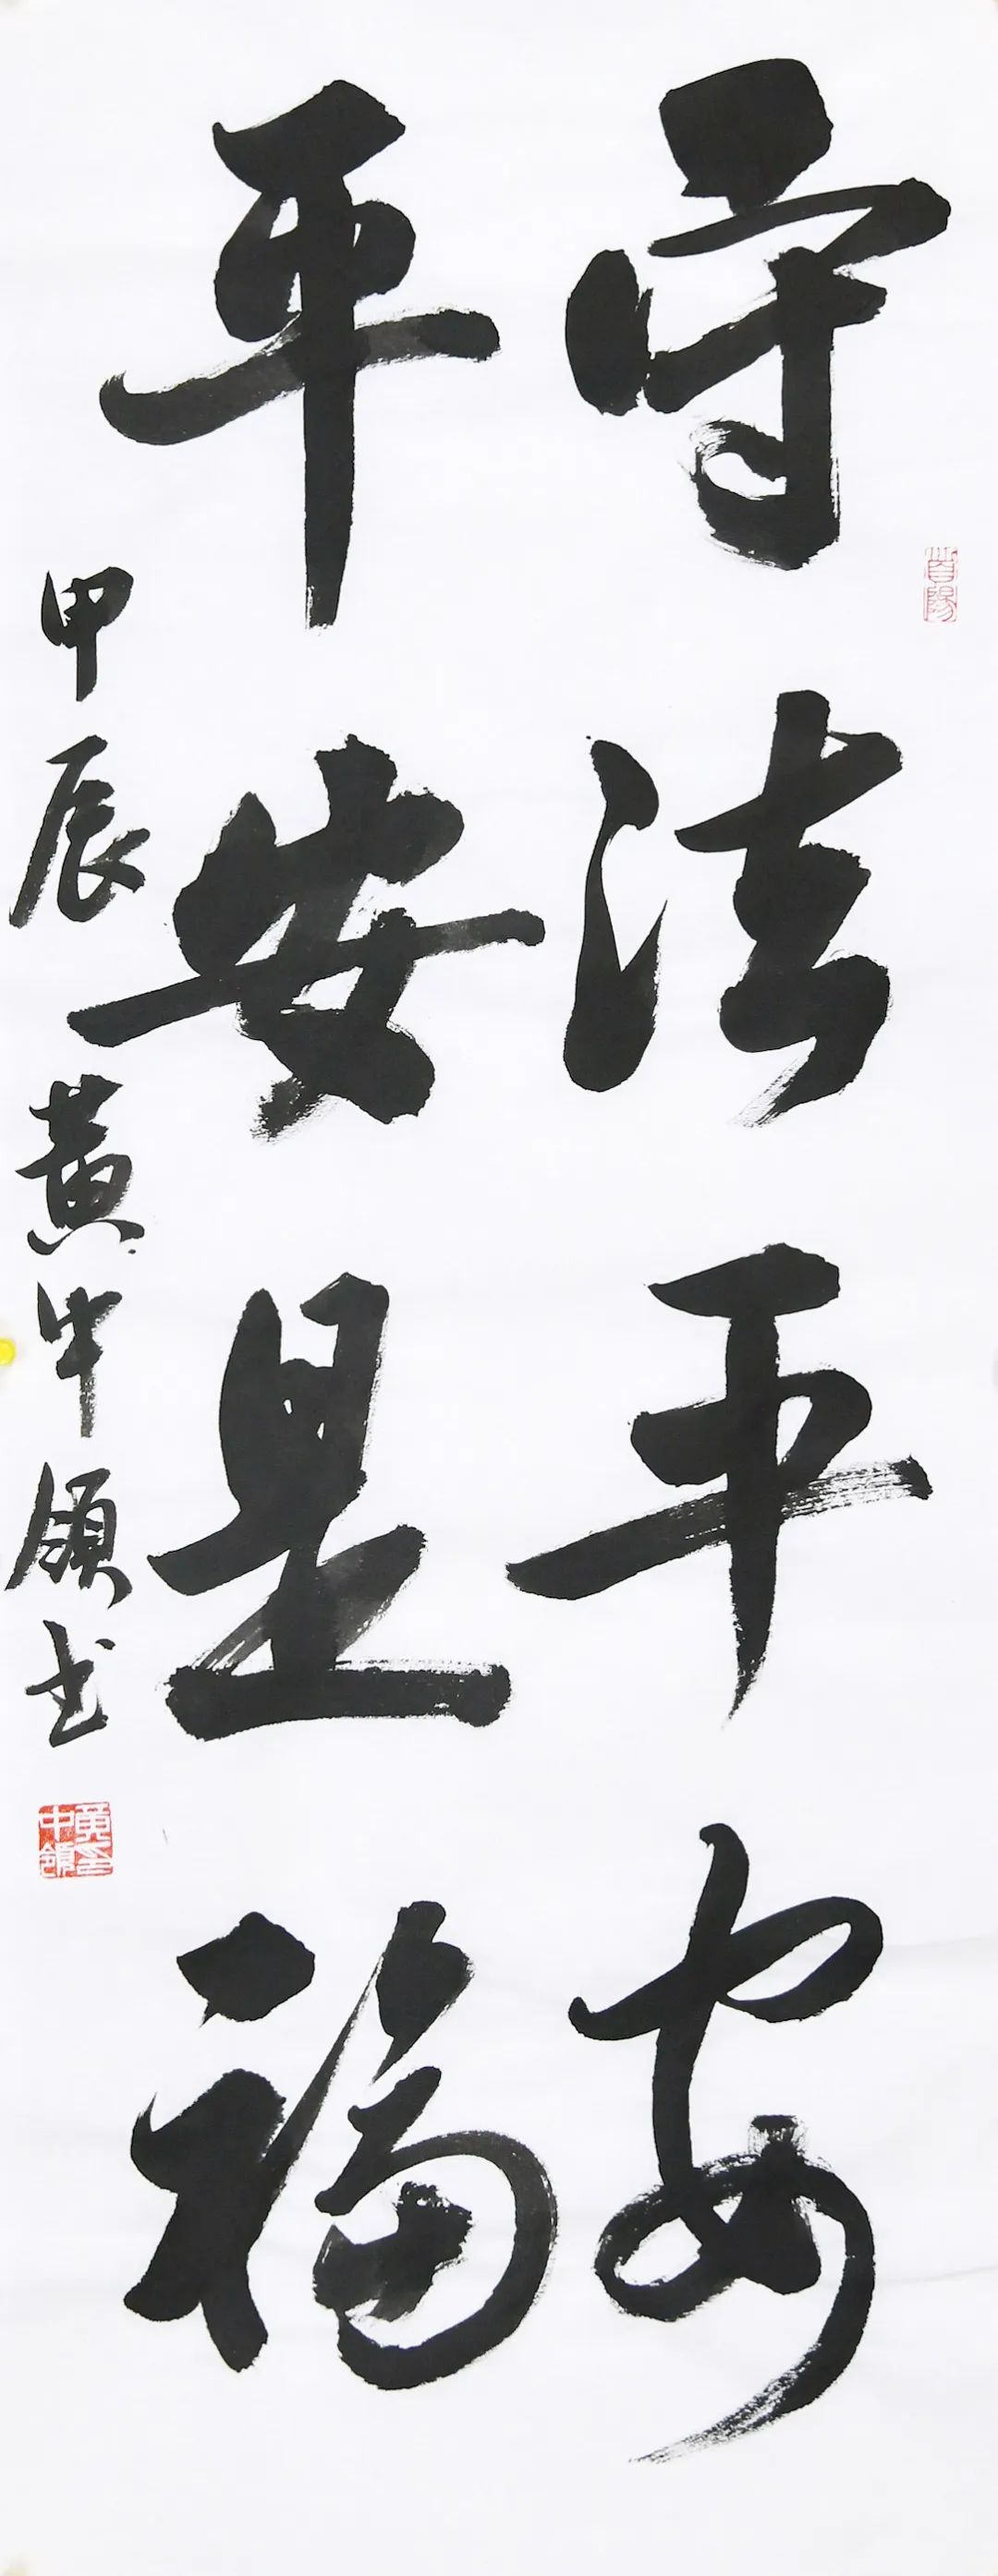 守法平安
平安是福
甲辰黄中领书
首陽
黄印中領